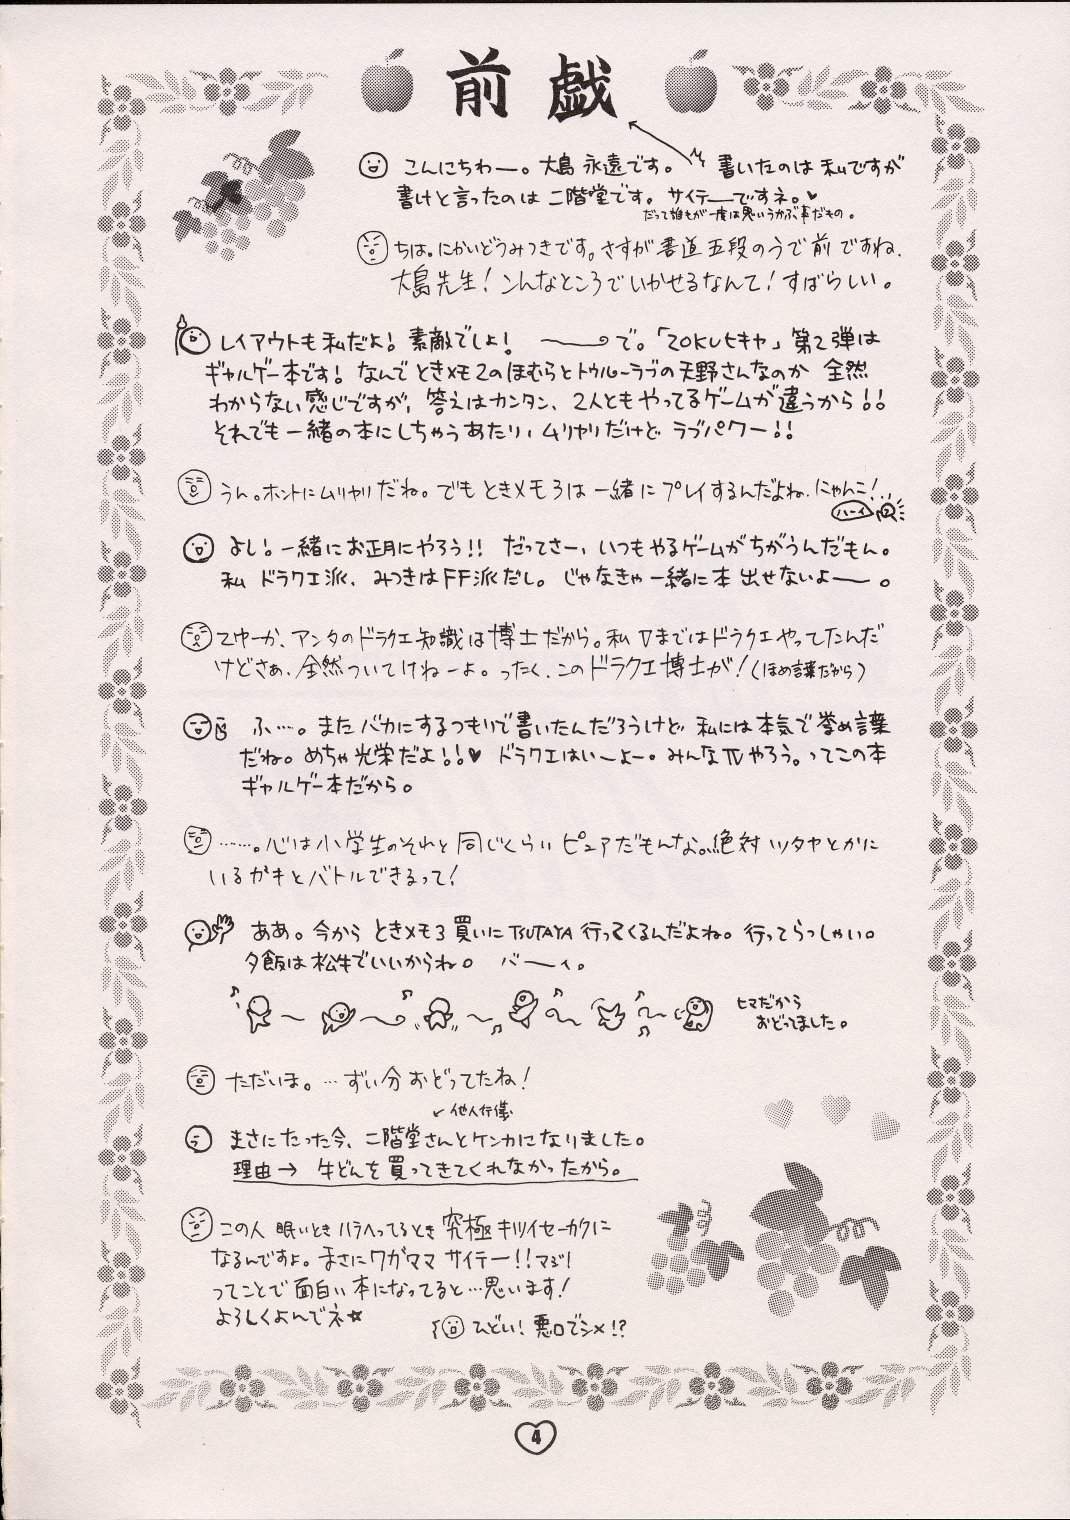 前戯
こんにちわー。大島 永遠です。 書いたのは 私ですが
書けと言ったのは 二階堂です。サイテーですネ。♥
だって誰もが一度は思いうかぶ事だもの。
ちは。にかいどうみつきです。さすが書道五段のうで前ですね、
大島先生！こんなところでいかせるなんて！すばらしい。
レイアウトも私だよ！素敵でしょ！ 〜で。「ZOKUヒキャ」第2弾は
ギャルゲー本です！なんでときメモ2のほむらとトゥルーラブの天野さんなのか 全然
わからない感じですが、答えはカンタン、2人ともやってるゲームが違うから！！
それでも一緒の本にしちゃうあたり、ムリヤリだけど ラブパワー！！
うん。ホントにムリヤリだね。でも ときメモ3は 一緒に プレイするんだよね、にゃんこ！
ハーイ
よし！一緒にお正月にやろう！！ だってさー、いつもやるゲームがちがうんだもん。
私 ドラクエ派、みつきはFF派だし。じゃなきゃ一緒に本 出せないよー。
てゆーか、アンタのドラクエ知識は博士だから。私 Vまではドラクエやってたんだ
けどさぁ、全然ついてけねーよ。ったく、このドラクエ博士が！（ほめ言葉だから）
ふ…。またバカにするつもりで書いたんだろうけど 私には本気で誉め言葉
だね。めちゃ光栄だよ！！♥ ドラクエはいーよー。みんなIVやろう。ってこの本
ギャルゲー本だから。
……。心は小学生のそれと同じくらい ピュアだもんな。絶対 ツタヤとかに
いるガキとバトルできるって！
ああ。今から ときメモ3 買いに TSUTAYA 行ってくるんだよね。行ってらっしゃい。
夕飯は 松牛でいいからね。 バーイ。
ヒマだから
おどってました。
ただいま。…ずい分 おどってたね！
↙他人行儀
まさにたった今、二階堂さんとケンカになりました。
理由→ 牛どんを買ってきてくれなかったから。
この人 眠いとき ハラへってるとき 究極キツイセーカクに
なるんですよ。まさにワガママ サイテー！！マジ！
ってことで 面白い本になってると…思います！
よろしくよんでネ☆
ひどい！悪口でシメ！？
4